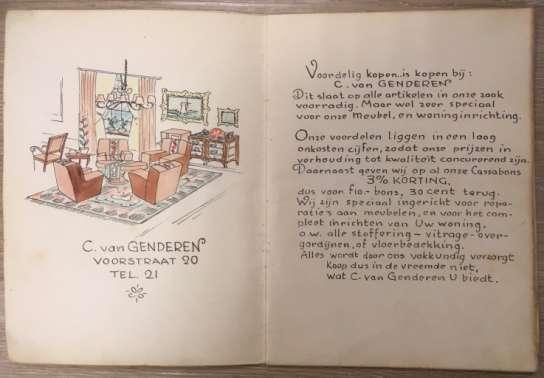 C. van GENDEREN
VOORSTRAAT 20
TEL. 21
Voordelig kopen..is kopen bij:
C. van GENDEREN
Dit slaat op alle artikelen in onze zaak
voorradig. Maar wel zeer speciaal
voor onze meubel, en woninginrichting.
Onze voordelen liggen in een laag
onkosten cijfer, zodat onze prijzen in
verhouding tot kwaliteit concurerend zijn.
Daarnaast geven wij op al onze Cassabons
3% KORTING,
dus voor f10- bons, 30 cent terug.
Wij zijn speciaal ingericht voor repa-
raties aan meubelen, en voor het com-
pleet inrichten van Uw woning,
o.w. alle stoffering - vitrage - over-
gordijnen, of vloerbedekking.
Alles wordt door ons vakkundig verzorgt
Koop dus in de vreemde niet,
wat C. van Genderen U biedt.